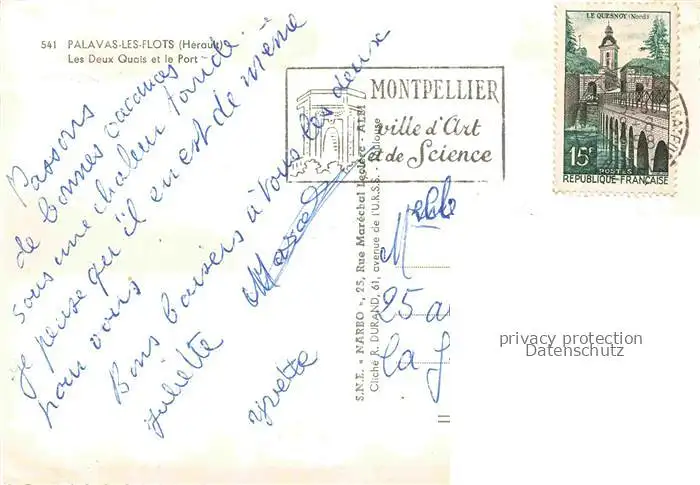 541 PALAVAS-LES-FLOTS (Hérault)
Les Deux Quais et le Port
Passons
de bonnes vacances
sous une chaleur torride
je pense qu'il en est de même
pour vous
Bons baisers à vous les deux
Juliette Marcel
Yvette
MONTPELLIER
ville d'Art
et de Science
LE QUESNOY (Nord)
15F
POSTES
REPUBLIQUE FRANÇAISE
S.N.E. « NARBO », 25, Rue Maréchal Leclerc - ALBI
Cliché R. DURAND, 61, avenue de l'U.R.S.S. - Toulouse
Melle
25 a
La J
privacy protection
Datenschutz